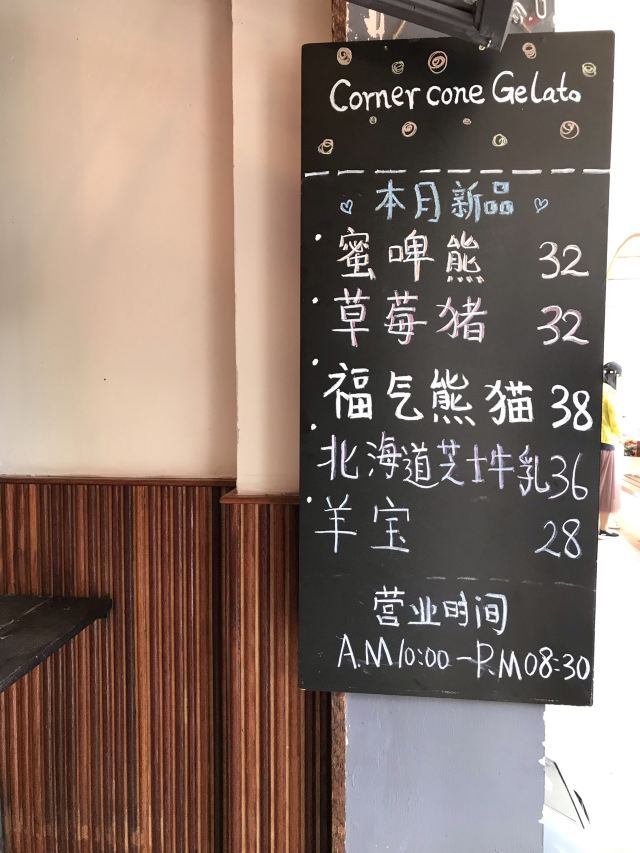 Corner cone Gelato
本月新品
蜜啤熊 32
草莓猪 32
福气熊猫 38
北海道芝士牛乳 36
羊宝 28
营业时间
A.M 10:00 - P.M 08:30